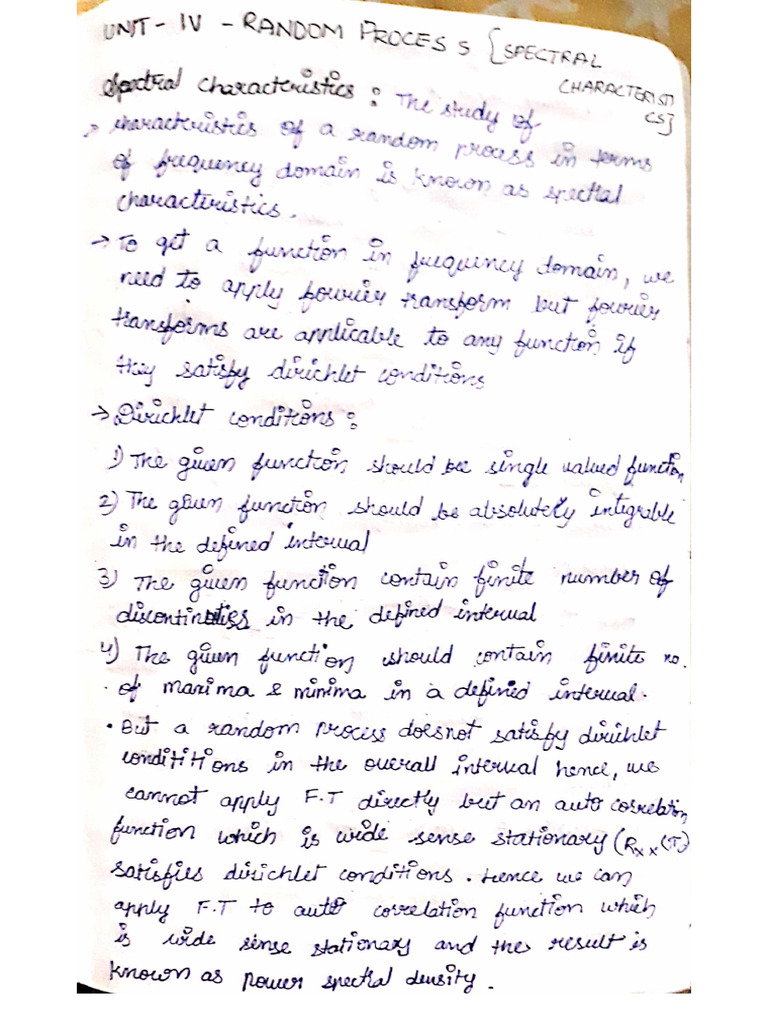 UNIT - IV - RANDOM PROCESS {SPECTRAL
CHARACTERISTI
CS}
Spectral characteristics : The study of
characteristics of a random process in terms
of frequency domain is known as spectral
characteristics.
→ To get a function in frequency domain, we
need to apply fourier transform but fourier
transforms are applicable to any function if
they satisfy dirichlet conditions
→ Dirichlet conditions :
1) The given function should be single valued function
2) The given function should be absolutely integrable
in the defined interval
3) The given function contain finite number of
discontinuities in the defined interval
4) The given function should contain finite no.
of maxima & minima in a defined interval.
• But a random process doesnot satisfy dirichlet
condititions in the overall interval hence, we
cannot apply F.T directly but an auto correlation
function which is wide sense stationary (Rxx(τ)
satisfies dirichlet conditions. Hence we can
apply F.T to auto correlation function which
is wide sense stationary and the result is
known as power spectral density.